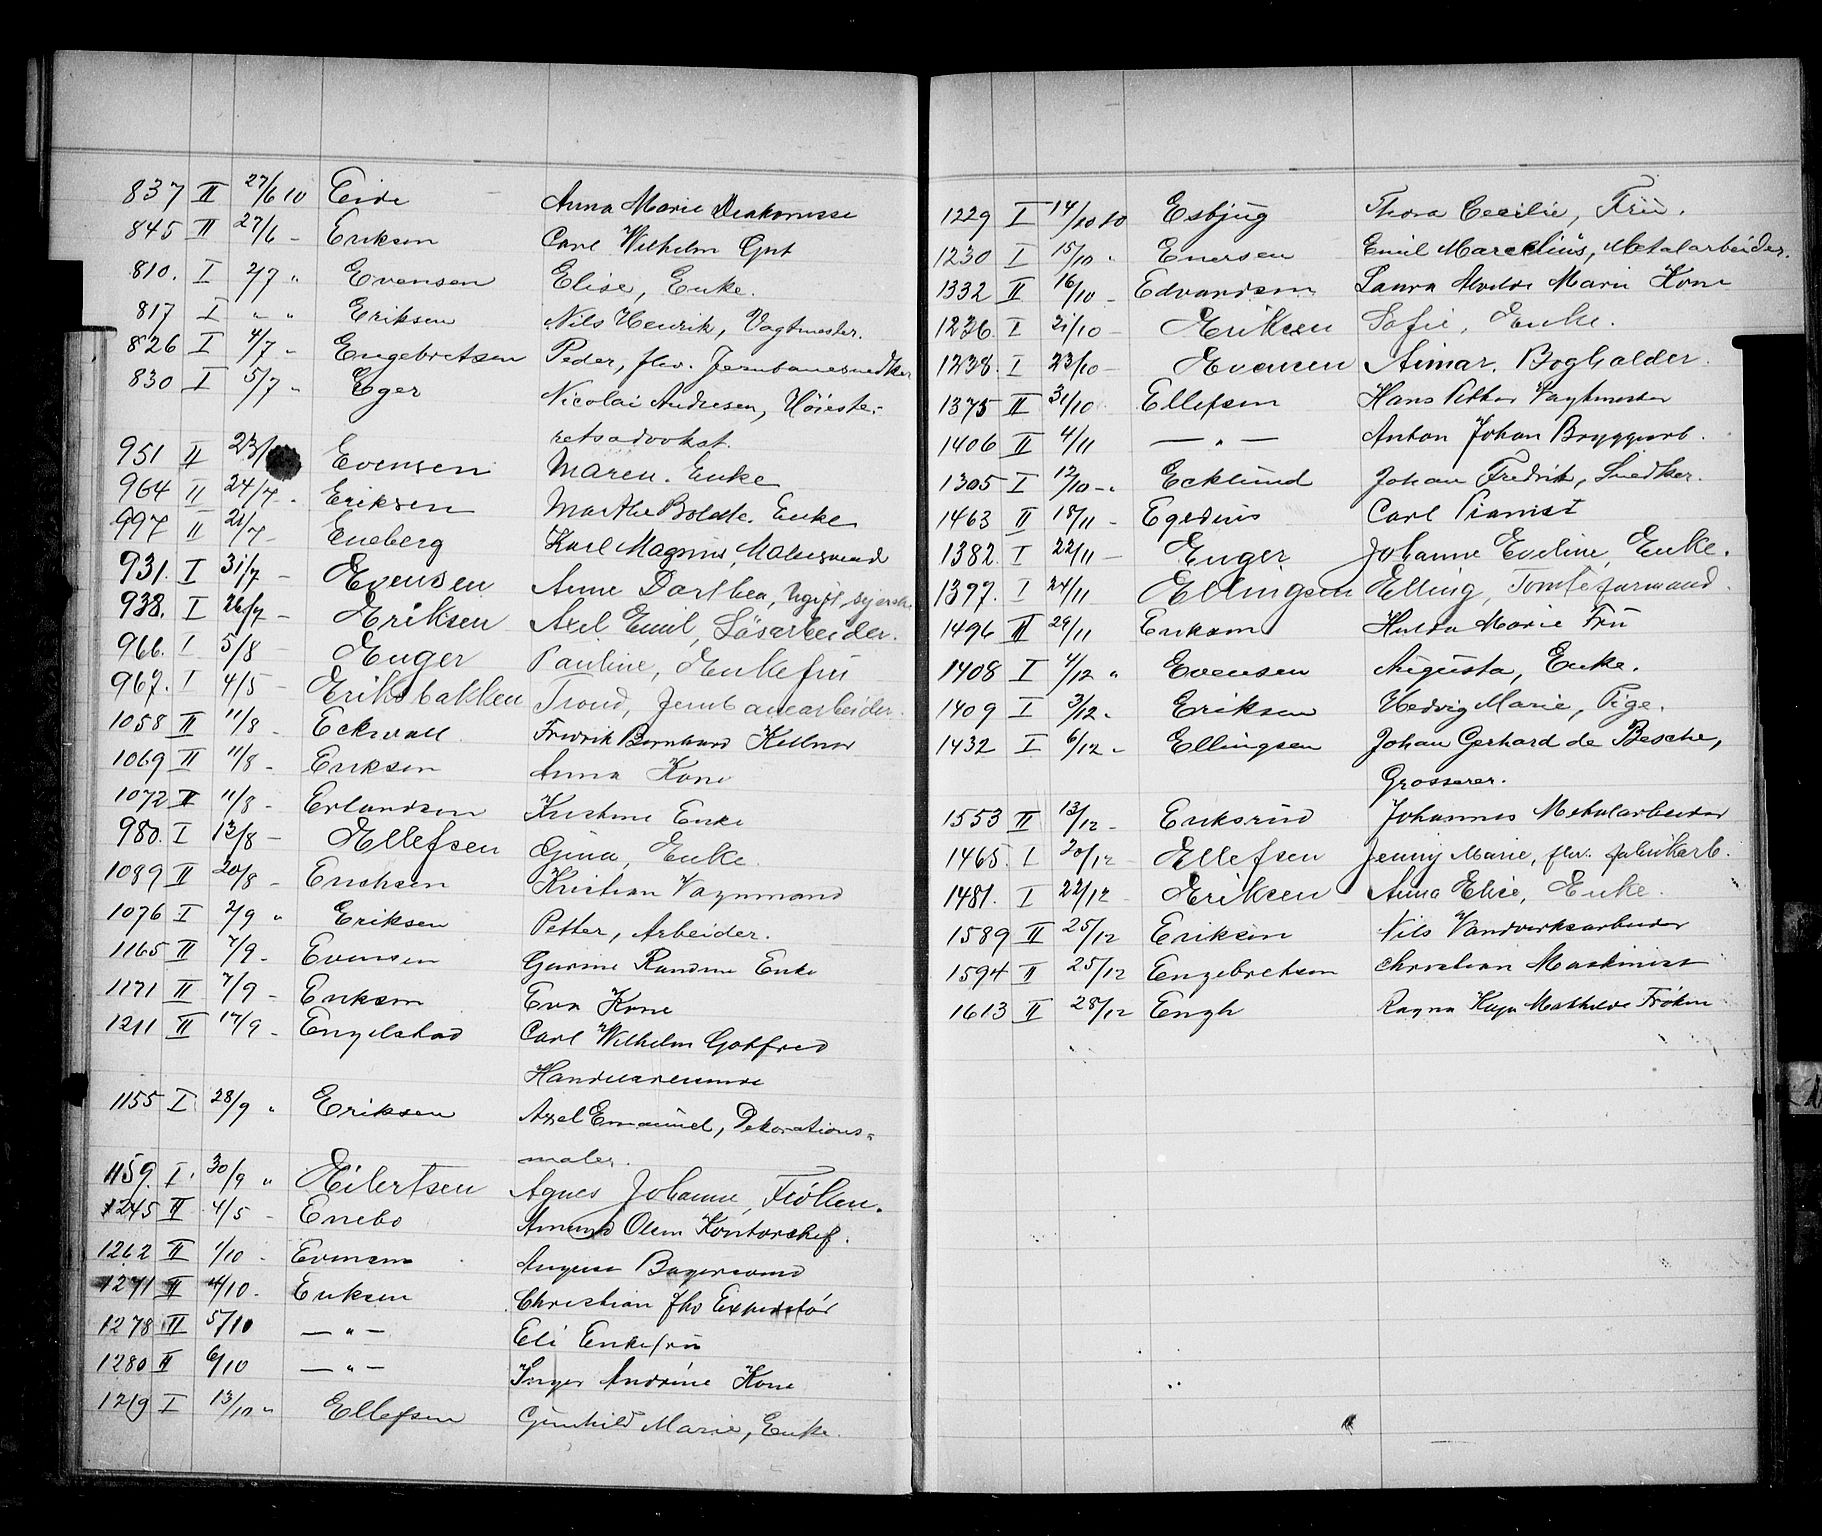 837 II 27/6 10 Eide Anna Marie Diakonisse
845 II 27/6 - Eriksen Carl Wilhelm Gut
810. I 2/7 " Evensen Elise, Enke.
817 I " " Eriksen Nils Henrik, Vagtmester.
826 I 4/7 " Engebretsen Peder, fhv. Jernbanesnedker
830 I 5/7 " Eger Nicolai Andresen, Höieste-
retsadvokat.
951 II 23/ Evensen Maren. Enke
964 II 24/7 - Eriksen Marthe Bolette. Enke
997 II /7 - Eneberg Karl Magnus, Malersvend
931. I 31/7 - Evensen Anne Dorthea, Ugift syerske
938. I 26/7 - Eriksen Axel Emil, Løsarbeider.
966. I 5/8 - Enger Pauline, Enkefru
967. I 4/5 - Eriksbakken Trond, Jernbanearbeider.
1058 II 11/8 - Eckwall Fredrik Bernhard Kellner
1069 II 11/8 - Eriksen Anna Kone
1072 II 11/8 - Erlandsen Kristine Enke
980. I 13/8 - Ellefsen Gina, Enke.
1089 II 20/8 - Erichsen Kristian Vognmand
1076 I 2/9 " Eriksen Petter, Arbeider.
1165 II 7/9 - Evensen Gurine Randine Enke
1171 II 7/9 - Eriksen Eva Kone
1211 II 17/9 - Engelstad Carl Wilhelm Gotfred
Handelsreisende
1155 I 28/9 " Eriksen Axel Emanuel, Dekorations-
maler.
1159. I. 30/9 " Eilertsen Agnes Johanne, Frøken.
1245 II 4/5 - Enebo Amund Olsen Kontorchef.
1262 II 1/10 - Evensen August Bagersvend
1271 II 4/10 - Eriksen Christian fhv Expeditør
1278 II 5/10 — " — Eli Enkefru
1280 II 6/10 — " — Inger Andrine Kone
1219 I 13/10 " Ellefsen Gunhild Marie, Enke.
1229 I 14/10 10 Esbjug Thora Cecilie, Frü.
1230 I 15/10 " Enersen Emil Marcelius, Metalarbeider.
1332 II 16/10 - Edvardsen Laura Alvilde Marie Kone
1236. I 21/10 - Eriksen Sofie, Enke.
1238. I 23/10 - Evensen Aimar. Bogholder.
1375 II 31/10 Ellefsen Hans Petter Vagtmester
1406 II 4/11 — " — Anton Johan Bryggearb.
1305 I 12/10 - " Ecklund Johan Fredrik, Snedker.
1463 II 18/11 - Egedius Carl Pianist
1382. I 22/11 - Enger Johanne Eveline, Enke.
1397. I 24/11 Ellingsen Elling, Tomteformand.
1496 II 29/11 Eriksen Hulda Marie Fru
1408 I 4/12 " Evensen Augusta, Enke.
1409 I 3/12 " Eriksen Hedvig Marie, Pige.
1432 I 6/12 " Ellingsen Johan Gerhard de Besche,
Grosserer.
1553 II 13/12 - Eriksrud Johannes Metalarbeider
1465. I 20/12 - Ellefsen Jenny Marie, fhv. fabrikarb.
1481. I 22/12 - Eriksen Anna Elise, Enke.
1589 II 25/12 Eriksen Nils Vandverksarbeider
1594 II 25/12 Engebretsen Christian Maskinist
1613 II 28/12 Engh Ragna Kaja Mathilde Frøken